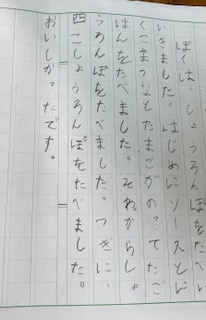 ぼくは しょうろんぽをたべに
いきました。はじめにソースとに
くこまつなとたまごがのってたご
はんをたべました。それからしょ
うろんぽをたべました。つぎに、
四こしょうろんぽをたべました。
おいしかったです。